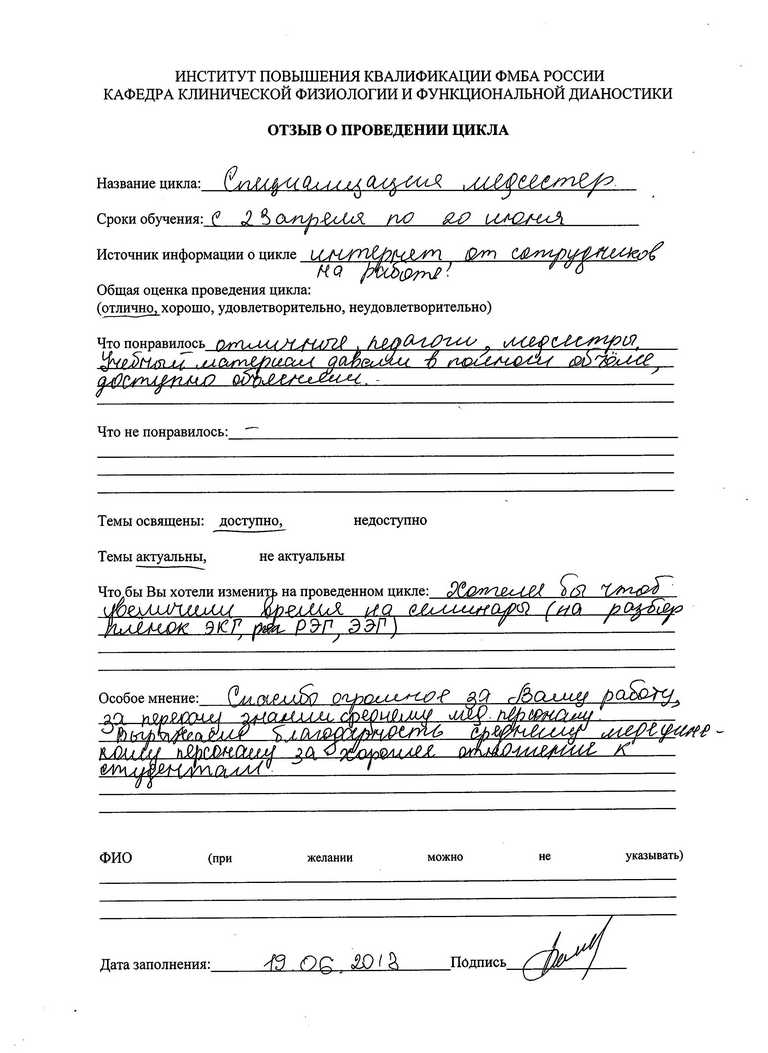 ИНСТИТУТ ПОВЫШЕНИЯ КВАЛИФИКАЦИИ ФМБА РОССИИ
КАФЕДРА КЛИНИЧЕСКОЙ ФИЗИОЛОГИИ И ФУНКЦИОНАЛЬНОЙ ДИАНОСТИКИ
ОТЗЫВ О ПРОВЕДЕНИИ ЦИКЛА
Название цикла: Специализация медсестер
Сроки обучения: с 23 апреля по 20 июня
Источник информации о цикле интернет, от сотрудников
на работе!
Общая оценка проведения цикла:
(отлично, хорошо, удовлетворительно, неудовлетворительно)
Что понравилось отличные педагоги, медсестры.
Учебный материал давали в полном объёме,
доступно объясняли.
Что не понравилось: –
Темы освящены: доступно, недоступно
Темы актуальны, не актуальны
Что бы Вы хотели изменить на проведенном цикле: Хотели бы чтоб
увеличили время на семинары (на разбор
пленок ЭКГ, РЭГ, ЭЭГ)
Особое мнение: Спасибо огромное за Вашу работу,
за передачу знаний среднему мед. персоналу.
Выражаем благодарность среднему медицинс-
кому персоналу за хорошее отношение к
студентам.
ФИО (при желании можно не указывать)
Дата заполнения: 19.06.2013 Подпись